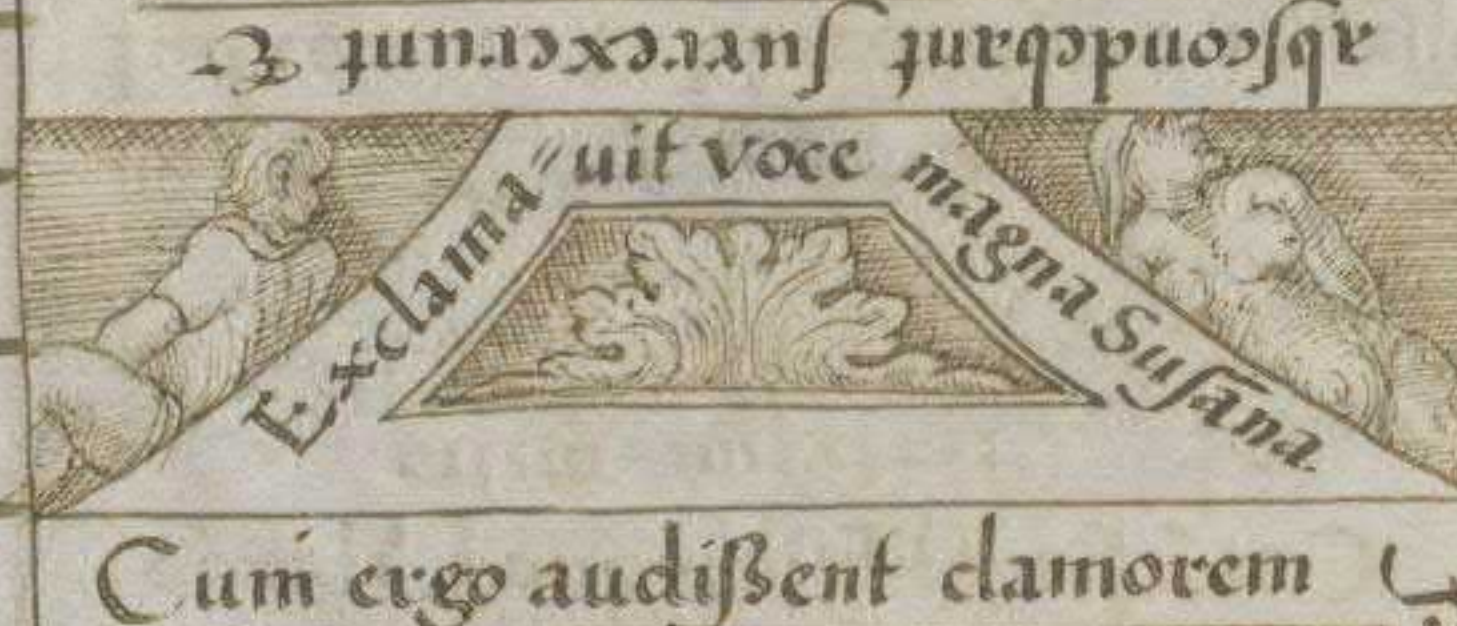 abscondebant surrexerunt &
Exclama״uit voce magna Susana.
Cum ergo audißent clamorem